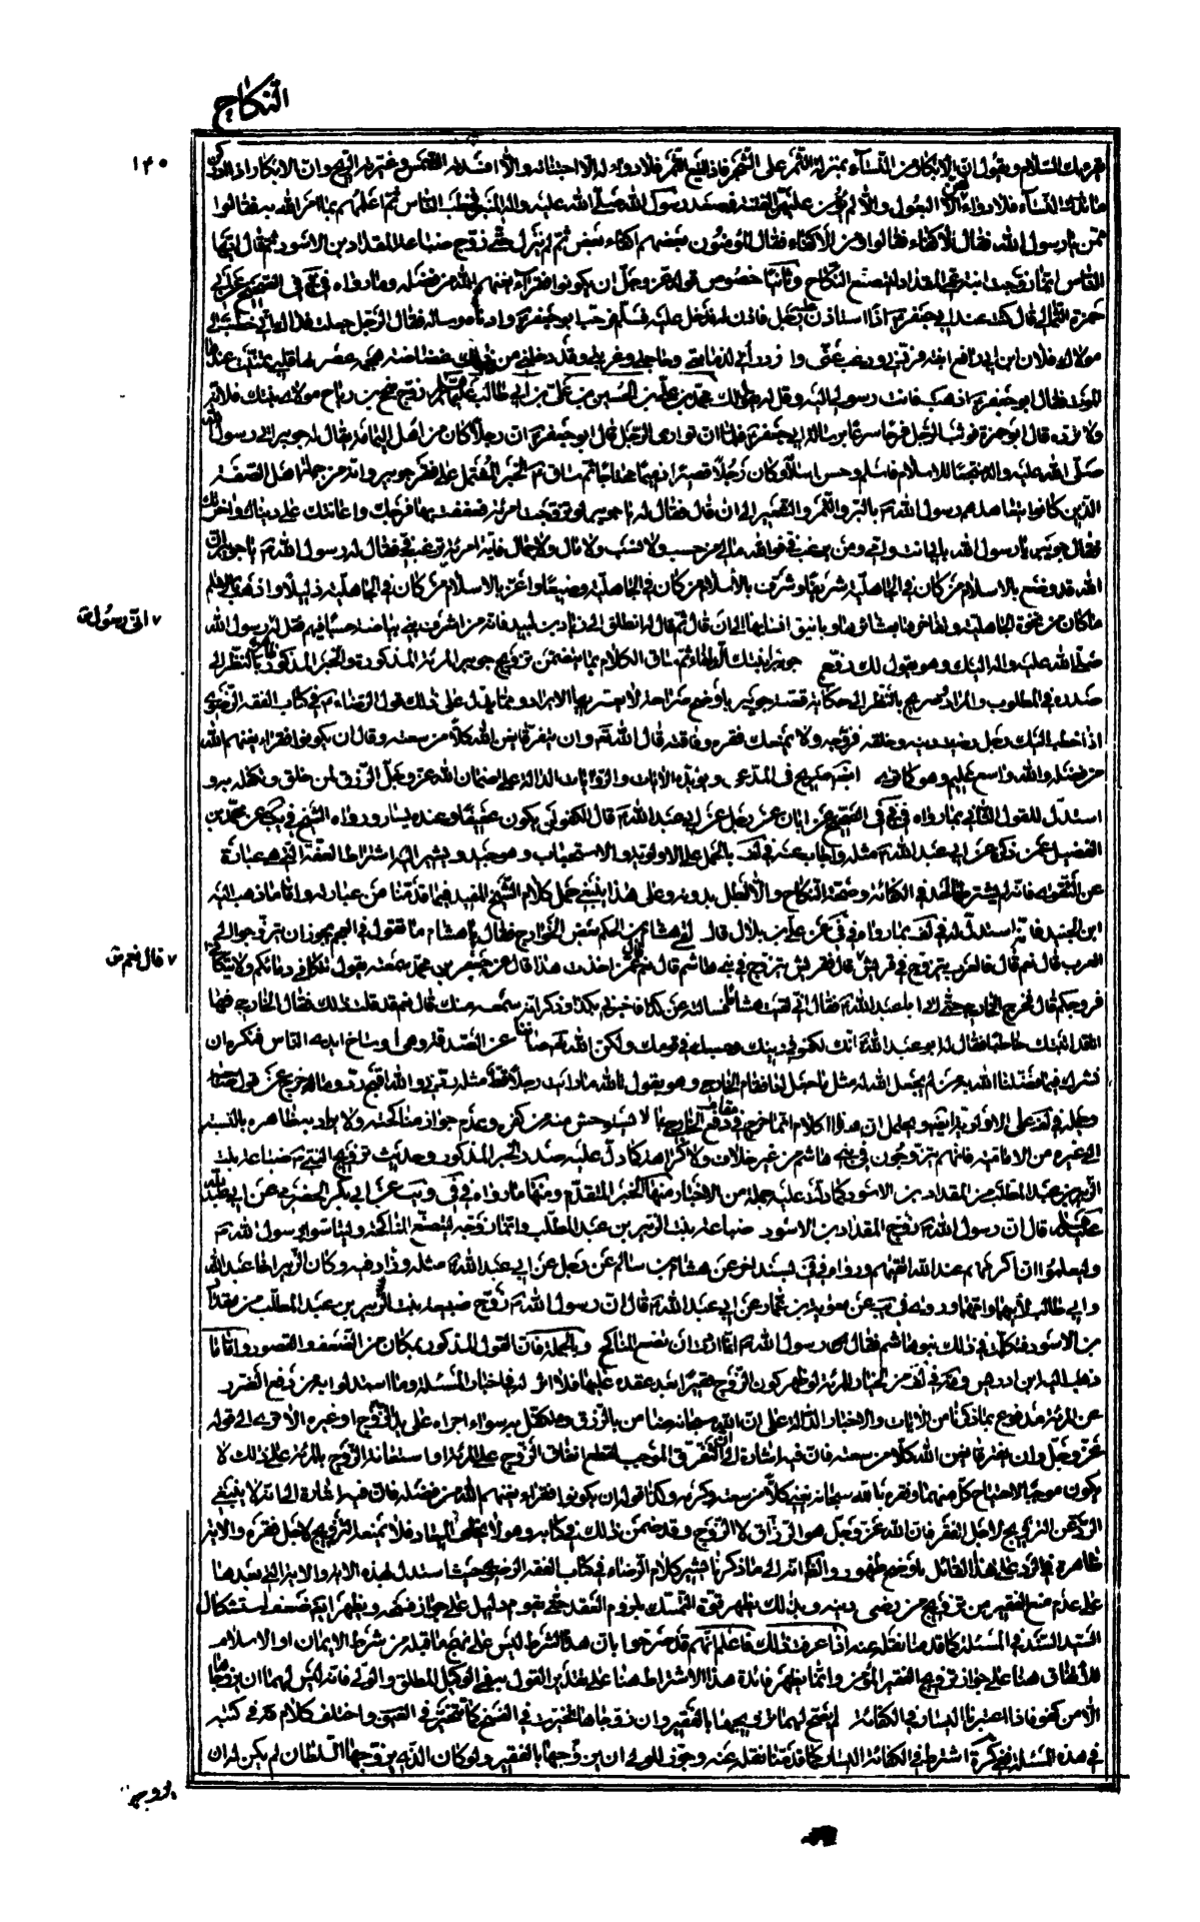 النكاح
١٤٠
يقرئك السلام ويقول ان الابكار من النسآء بمنزلة الثمر على الشجر فاذا اينع الثمر فلا دواء له الا اجتنائه والا افسدته الشمس وغيرته الريح وان الابكار اذا ادركن
ما تدرك النسآء فلا دواء لهن الا البعول والا لم يؤمن عليهن الفتنة فصعد رسول الله صلى الله عليه واله المنبر فخطب الناس ثم اعلمهم بما امر الله به فقالوا
ممن يا رسول الله فقال الاكفاء فقالوا ومن الاكفاء فقال المؤمنون بعضهم اكفاء بعض ثم لم ينزل حتى زوج ضباعة المقداد بن الاسود ثم قال ايها
الناس انما زوجت ابنة عمى المقداد ليتضع النكاح وثانيا خصوص قوله عز وجل ان يكونوا فقرآء يغنهم الله من فضله وما رواه في في الصحيح عن ابى
حمزة الثمالي قال كنت عند ابي جعفر اذا استاذن عليه رجل فاذن له فدخل عليه فسلم فرحب ابو جعفر وادناه وسائله فقال الرجل جعلت فداك انى خطبت الى
مولاك فلان ابن ابي رافع ابنته فردنى ورغب عنى وازدرأنى لدمامتى وحاجتى وغربتى وقد دخلنى من ذلك غضاضة هجمة عصر لها قلبى تمنيت عندها
الموت فقال ابو جعفر اذهب فانت رسولى اليه وقل له يقول لك محمد بن على بن الحسين بن على بن ابى طالب زوج منجح بن رياح مولاى ابنتك فلانة
ولا ترده قال ابو حمزة فوثب الرجل فرحا مسرعا برسالة ابى جعفر فلما ان توارى الرجل قال ابو جعفر ان رجلا كان من اهل اليمامة يقال له جويبر اتى رسول الله
صلى الله عليه واله منتجعا للاسلام فاسلم وحسن اسلامه وكان رجلا قصيرا دميما محتاجا ثم ساق الخبر المشتمل على فقر جويبر وانه من جملة اهل الصفة
الذين كانوا يتعاهدهم رسول الله بالبر والتمر والشعير الى ان قال فقال له يا جويبر لو تزوجت امرئة فعففت بها فرجك واعانتك على دنياك واخرتك
فقال جويبر يا رسول الله بابى انت وامى ومن يرغب فى فوالله مالى من حسب ولا نسب ولا مال ولا جمال فاية امرئة ترغب فى فقال له رسول الله يا جويبر ان
الله قد وضع بالاسلام من كان في الجاهلية شريفا وشرف بالاسلام من كان في الجاهلية وضيعا واعز بالاسلام من كان في الجاهلية ذليلا واذهب بالاسلام
ما كان من نخوة الجاهلية وتفاخرها بعشائرها وباسق انسابها الى ان قال ثم قال له انطلق الى زياد بن لبيد فانه من اشرف بنى بياضة حسبا فيهم فقل له رسول الله
انى رسول
صلى الله عليه واله اليك وهو يقول لك زوج جويبرا بنتك الدلفاء ثم ساق الكلام بما يتضمن تزويج جويبر المرئة المذكورة والخبر المذكور بالنظر الى
صدره في المطلوب والمراد صريح بالنظر الى حكاية قصة جويبر باوضح صراحة ومما يدل على ذلك قول الرضا في كتاب الفقه الرضوى
اذا خطب اليك رجل رضيت دينه وخلقه فزوجه ولا يمنعك فقره وفاقته قال الله وان يتفرقا يغن الله كلا من سعته وقال ان يكونوا فقراء يغنهم الله
من فضله والله واسع عليم وهو كما ترى ايضا صريح في المدعى ويؤيده الايات والروايات الدالة على ضمان الله عز وجل الرزق لمن خلق وتكفله به و
استدل للقول الثانى بما رواه في في الصحيح عن ابان عن رجل عن ابى عبد الله قال الكفو ان يكون عفيفا وعنده يسار ورواه الشيخ في يب عن محمد بن
الفضيل عن ذكره عن ابى عبد الله مثله واجاب عنه في لف بالحمل على الاولوية والاستحباب وهو جيد ويشير اليه اشتراط العفة التى هي عبارة
عن التقوى فانه لم يشترطها احد في الكفائة وصحة النكاح والا لبطل بدونه وعلى هذا ينبغى حمل كلام الشيخ المفيد فيما قدمنا من عباره واما ما ذهب اليه
ابن الجنيد فانه استدل له في لف بما رواه في في عن على بن بلال قال لقى هشام بن الحكم بعض الخوارج فقال يا هشام ما تقول في العجم يجوز ان يتزوجوا الى
العرب قال نعم قال فالعرب يتزوج في قريش قال فقريش تتزوج في بنى هاشم قال نعم قال عمن اخذت هذا قال عن جعفر بن محمد سمعته يقول تتكافى دمائكم ولا تتكافى
قال نعم
فروجكم قال فخرج الخارجى حتى اتى ابا عبد الله فقال انى لقيت هشاما فسالته عن كذا فاخبرنى بكذا وذكر انه سمعه منك قال نعم قد قلت ذلك فقال الخارجى فها
انا قد اتيتك خاطبا فقال له ابو عبد الله انك لكفو في دينك وحسبك في قومك ولكن الله صاننا عن الصدقة وهى اوساخ ايدى الناس فنكره ان
نشرك فيما فضلنا الله به من لم يجعل الله له مثل ما جعل لنا فقام الخارجى وهو يقول تالله ما رايت رجلا قط مثله ردنى والله اقبح رد وما خرج عن قول صاحبه
وحمله في لف على الاولوية ايضا ويحتمل ان هذا الكلام انما خرج في مقام دفع الخارجى بما لا يستوحش منه من كفره وعدم جواز مناكحته ولا يراد به ظاهره بالنسبة
الى غيره من الامامية فانهم يتزوجون في بنى هاشم من غير خلاف ولا نكر احد كما دل عليه صدر الخبر المذكور وحديث تزويج النبى ضباعة بنت
الزبير بن عبد المطلب من المقداد بن الاسود كما دلت عليه جملة من الاخبار منها الخبر المتقدم ومنها ما رواه في في ويب عن ابى بكر الحضرمى عن ابى عبد الله
قال ان رسول الله زوج المقداد بن الاسود ضباعة بنت الزبير بن عبد المطلب وانما زوجه لتتضع المناكح وليتاسوا برسول الله
وليعلموا ان اكرمهم عند الله اتقيهم ورواه في في بسند اخر عن هشام بن سالم عن رجل عن ابى عبد الله مثله وزاد فيه وكان الزبير اخا عبد الله
وابى طالب لابيهما وامهما وروى في يب عن معوية بن عمار عن ابى عبد الله قال ان رسول الله زوج ضبيعة بنت الزبير بن عبد المطلب من مقداد
بن الاسود فتكلمت في ذلك بنو هاشم فقال رسول الله انما اردت ان تتضع المناكح وبالجملة فان القول المذكور بمكان من الضعف والقصور واما ما
ذهب اليه ابن ادريس وقبله في لف من الخيار للمرئة لو ظهر كون الزوج فقيرا بعد عقده عليها فلا اثر له في اخبار المسئلة وما استدلوا به من دفع الضرر
عن المرئة مدفوع بما ذكرنا من الايات والاخبار الدالة على ان الله سبحانه ضامن بالرزق ومتكفل به سواء اجراه على يد الزوج او غيره الا ترى الى قوله
عز وجل وان يتفرقا يغن الله كلا من سعته فان فيه اشارة الى ان التفرق الموجب لقطع انفاق الزوج على المرئة او استغنائه الزوج بالمرئة على ذلك لا
يكون موجبا لاحتياج كل منهما وفقره بل الله سبحانه يغنى كلا من سعته وكرمه وكذا قوله ان يكونوا فقراء يغنهم الله من فضله فان فيه اشارة الى انه لا ينبغى
الرد عن التزويج لاجل الفقر فان الله عز وجل هو الرزاق لا الزوج وقد ضمن ذلك في كتابه وهو لا يخلف الميعاد فلا يمنعه التزويج لاجل فقره والاية
ظاهرة في الرد على هذا القائل باوضح ظهور والظاهر انه الى ما ذكرنا يشير كلام الرضا في كتاب الفقه الرضوى حيث استدل بهذه الاية والاية التى بعدها
على عدم منع الفقير من تزويج من رضى دينه وبذلك يظهر قوة التمسك بلزوم العقد حتى يقوم دليل على جواز فسخه ويظهر لك ضعف استشكال
السيد السند في المسئلة كما قدمنا نقله عنه اذا عرفت ذلك فاعلم انهم قد صرحوا بان هذا الشرط ليس على نهج ما قبله من شرط الايمان او الاسلام
للاتفاق هنا على جواز تزويج الفقير المؤمن وانما يظهر فائدة هذا الاشتراط هنا على هذين القول به في الوكيل المطلق والولى فانه ليس لهما ان يزوجاها
الا من كفو فاذا اعتبرنا اليسار في الكفائة لم يصح لهما تزويجها بالفقير وان زوجاها تخيرت في الفسخ كما تتخير في العيب واختلف كلام في كتبه
في هذه المسئلة ففى كرة اشترط في الكفائة اليسار كما قدمنا نقله عنه وجوز للولى ان يزوجها بالفقير ولو كان الذى يزوجها السلطان لم يكن له ان
يزوجها